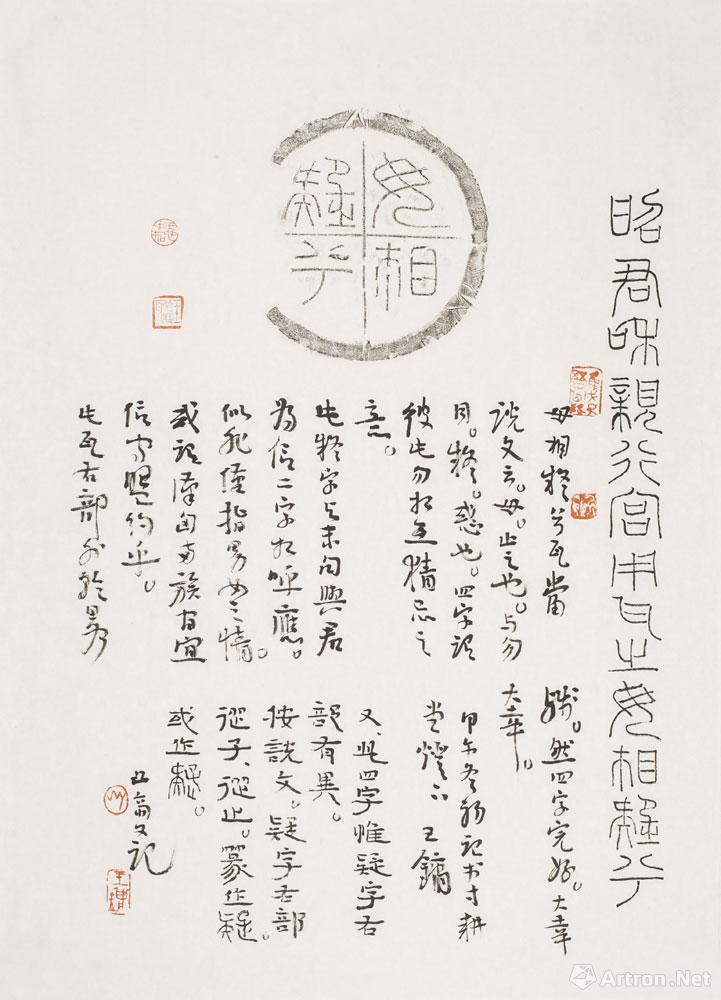 昭君和親行宮用瓦之毋相疑兮
毋相疑兮
毋相疑兮瓦當
說文云。毋。止之也。与勿
同。疑。惑也。四字謂
彼此勿相互猜忌之
意。
此疑字与末句與君
為信二字相呼應。
似非僅指男女之情。
或謂漢匈兩族宜
信守盟約乎。
此瓦右部外
殘。然四字完好。大幸
大幸。
甲午冬初記於寸耕
堂燈下 王鏞
又、此四字惟疑字右
部有異。
按說文。疑字右部
從子、從止。篆作疑。
或作疑。
翁又記
Artron.Net